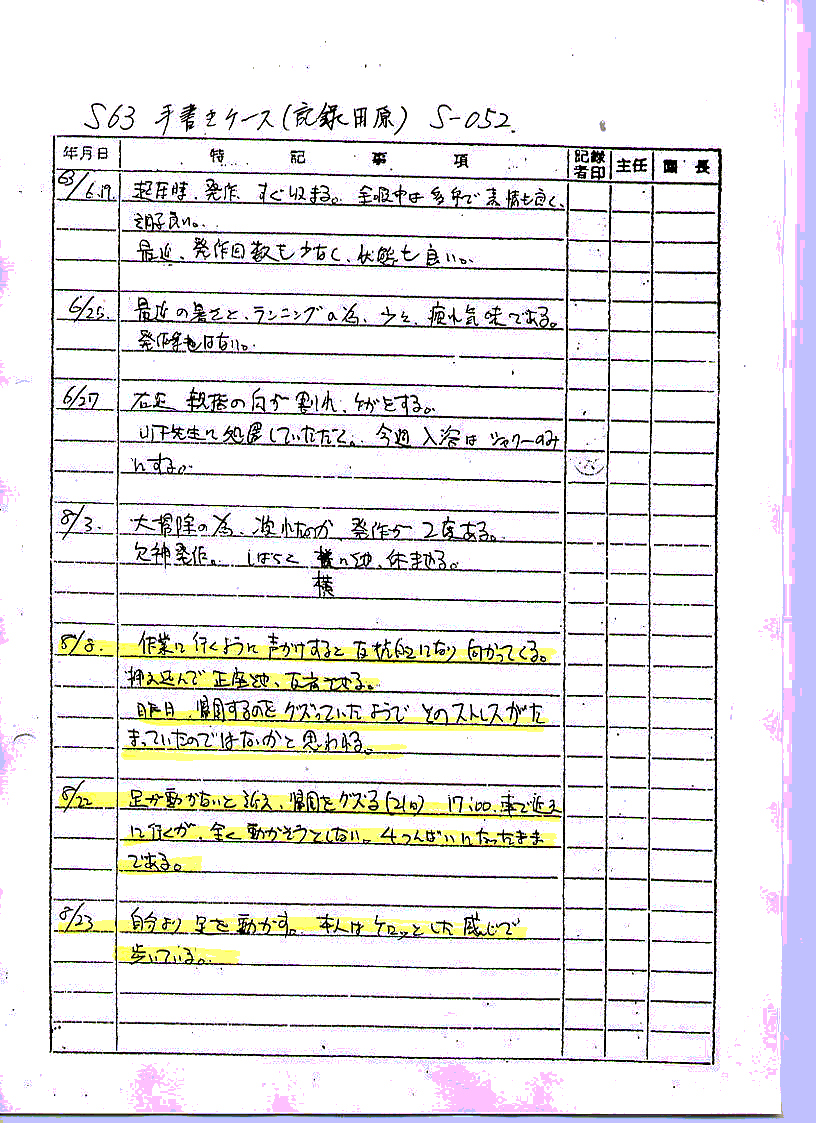 S63 手書きケース(記録田原) S-052.
年月日 特記事項 記録者印 主任 園長
63/6.19. 起床時、発作、すぐ収まる。全般中は多弁で表情も良く、
調子良い。
最近、発作回数も少なく、状態も良い。
6/25. 最近の暑さと、ランニングの為、少々、疲れ気味である。
発作はない。
6/27 右足 親指の爪が割れ、けがをする。
山下先生に処置していただく。今週 入浴は シャワーのみ
にする。
8/3. 大掃除の為、疲れたのか、発作が2度ある。
欠神発作。しばらく 横に、休ませる。
横
8/8. 作業に行くように声かけすると反抗的になり向かってくる。
押え込んで正座させ、反省させる。
昨日、帰園するのをグズっていたようで そのストレスがた
まっていたのではないかと思われる。
8/22 足が動かないと訴え、帰園をグズる(21日) 17:00 車で迎え
に行くが、全く動かそうとしない。4つんばいになったまま
である。
8/23 自分より足を動かす。本人はケロッとした感じで
歩いている。